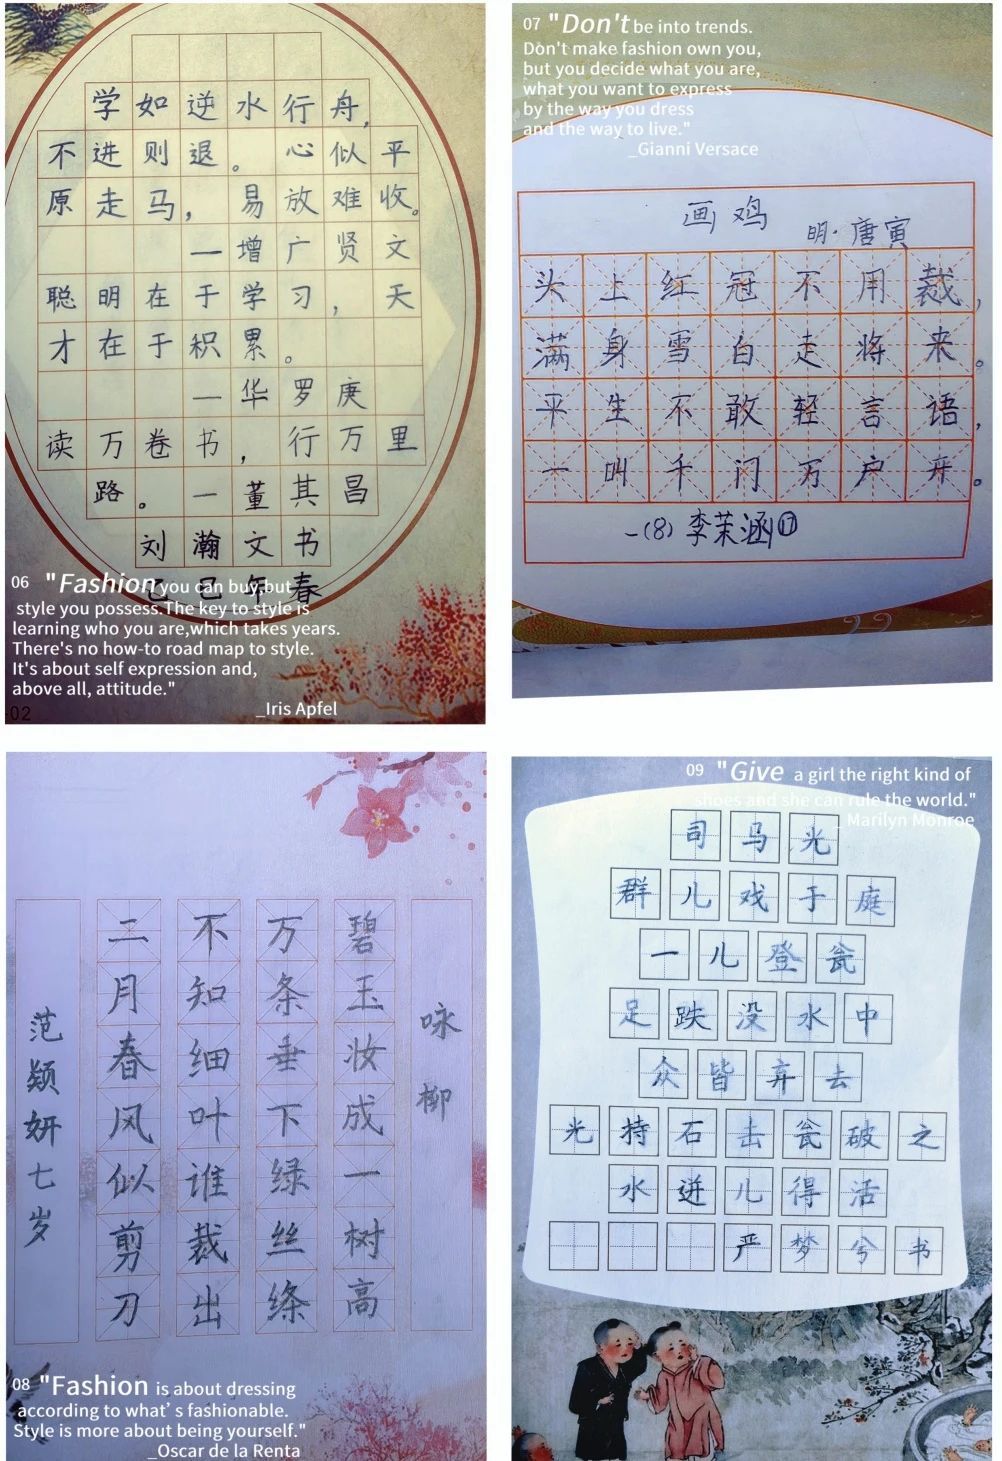 学如逆水行舟,
不进则退。心似平
原走马,易放难收。
—增广贤文
聪明在于学习,天
才在于积累。
—华罗庚
读万卷书,行万里
路。—董其昌
刘瀚文书
乙巳年春
06 "Fashion you can buy,but
style you possess.The key to style is
learning who you are,which takes years.
There's no how-to road map to style.
It's about self expression and,
above all, attitude."
_Iris Apfel
02
07 "Don't be into trends.
Don't make fashion own you,
but you decide what you are,
what you want to express
by the way you dress
and the way to live."
_Gianni Versace
画鸡
明·唐寅
头上红冠不用裁,
满身雪白走将来。
平生不敢轻言语,
一叫千门万户开。
一(8) 李茉涵⑰
咏柳
碧玉妆成一树高
万条垂下绿丝绦
不知细叶谁裁出
二月春风似剪刀
范颍妍七岁
08 "Fashion is about dressing
according to what's fashionable.
Style is more about being yourself."
_Oscar de la Renta
09 "Give a girl the right kind of
shoes and she can rule the world."
_Marilyn Monroe
司马光
群儿戏于庭
一儿登瓮
足跌没水中
众皆弃去
光持石击瓮破之
水迸儿得活
严梦兮书